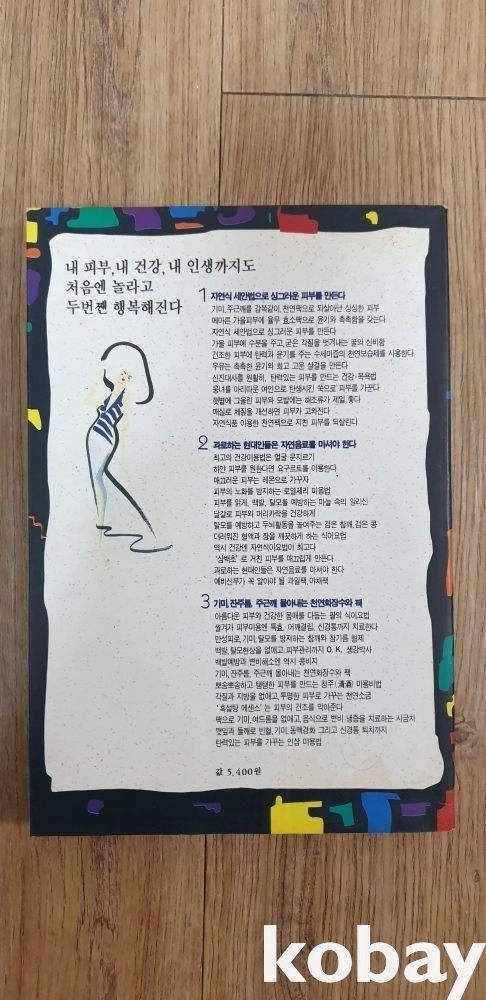 내 피부, 내 건강, 내 인생까지도
처음엔 놀라고
두번짼 행복해진다
1 자연식 세안법으로 싱그러운 피부를 만든다
기미, 주근깨를 감쪽같이, 천연팩으로 되살아난 싱싱한 피부
메마른 가을피부에 율무 효소팩으로 윤기와 촉촉함을 갖는다
자연식 세안법으로 싱그러운 피부를 만든다
가을 피부에 수분을 주고, 굳은 각질을 벗겨내는 꿀의 신비함
건조한 피부에 탄력과 윤기를 주는 수세미즙의 천연보습제를 사용한다
우유는 촉촉한 윤기와 희고 고운 살결을 만든다
신진대사를 원활히, 탄력있는 피부를 만드는 건강·목욕법
웅녀를 아리따운 여인으로 탄생시킨 쑥으로 피부를 가꾼다
햇볕에 그을린 피부와 모발에는 해조류가 제일 좋다
매실로 체질을 개선하면 피부가 고와진다
자연식품 이용한 천연팩으로 지친 피부를 되살린다
2 과로하는 현대인들은 자연음료를 마셔야 한다
최고의 건강미용법은 얼굴 문지르기
하얀 피부를 원한다면 요구르트를 이용한다
매끄러운 피부는 레몬으로 가꾸자
피부의 노화를 방지하는 로열제리 미용법
피부를 맑게, 백발, 탈모를 예방하는 마늘 속의 알리신
달걀로 피부와 머리카락을 건강하게
탈모를 예방하고 두뇌활동을 높여주는 검은 참깨, 검은 콩
더러워진 혈액과 장을 깨끗하게 하는 식이요법
역시 건강엔 자연식이요법이 최고다
'삼백초' 로 거친 피부를 매끄럽게 만든다
과로하는 현대인들은 자연음료를 마셔야 한다
예비신부가 꼭 알아야 될 과일팩, 야채팩
3 기미, 잔주름, 주근깨 몰아내는 천연화장수와 팩
아름다운 피부와 건강한 몸매를 다듬는 팥의 식이요법
쌀겨가 피부미용엔 특효, 어깨결림, 신경통까지 치료한다
만성피로, 기미, 탈모를 방지하는 참깨와 참기름 형제
백발, 탈모현상을 없애고 피부관리까지 O. K. 생강박사
백발예방과 변비해소엔 역시 콩비지
기미, 잔주름, 주근깨 몰아내는 천연화장수와 팩
뽀송뽀송하고 탱탱한 피부를 만드는 청주(清酒) 미용비법
각질과 지방을 없애고, 투명한 피부로 가꾸는 천연소금
'흑설탕 에센스' 는 피부의 건조를 막아준다
팩으로 기미, 여드름을 없애고, 음식으로 변비 냉증을 치료하는 시금치
깻잎과 들깨로 빈혈, 기미, 동맥경화 그리고 신경통 퇴치까지
탄력있는 피부를 가꾸는 인삼 미용법
값 5,400원
kobay